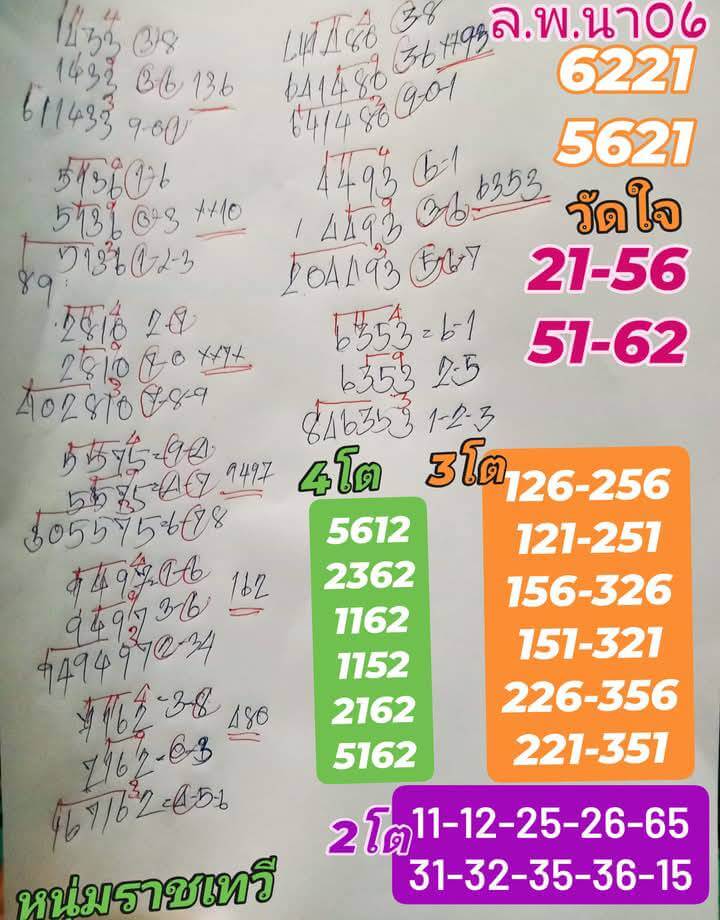 ล.พ.นา06
6221
5621
วัดใจ
21-56
51-62
1433 3-8
1433 3-6 136
611433 9-0-1
5136 1-6
5136 3 **10
895136 1-2-3
2810
2810 **7*
402810 7-8-9
5575=9-4
5575=4-7 9497
305575=6-78
9497
9497 3-6 162
949497 2-34
7162-3-8 480
7162
467162=4-5-6
641480 3-8
641480 3-6 **93
641480 9-0-1
4493 6-1
4493 3-6 6353
204493 5-6-7
6353=6-1
6353 2-5
846353 1-2-3
4โต
5612
2362
1162
1152
2162
5162
3โต
126-256
121-251
156-326
151-321
226-356
221-351
2โต
11-12-25-26-65
31-32-35-36-15
หนุ่มราชเทวี